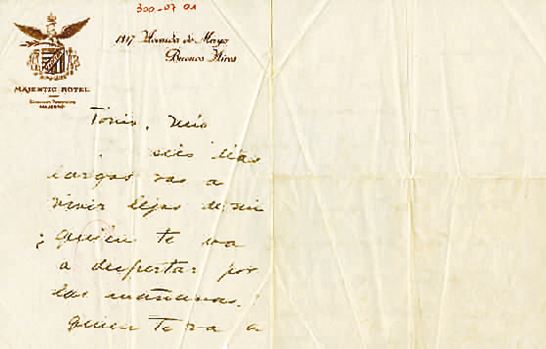 300-07 01
1317 Avenida de Mayo
Buenos Aires
MAJESTIC HOTEL
MAJESTIC
mio
seis días
largos vas a
vivir lejos de mi
¿quién te va
a despertar por
las mañanas?
quien te va a